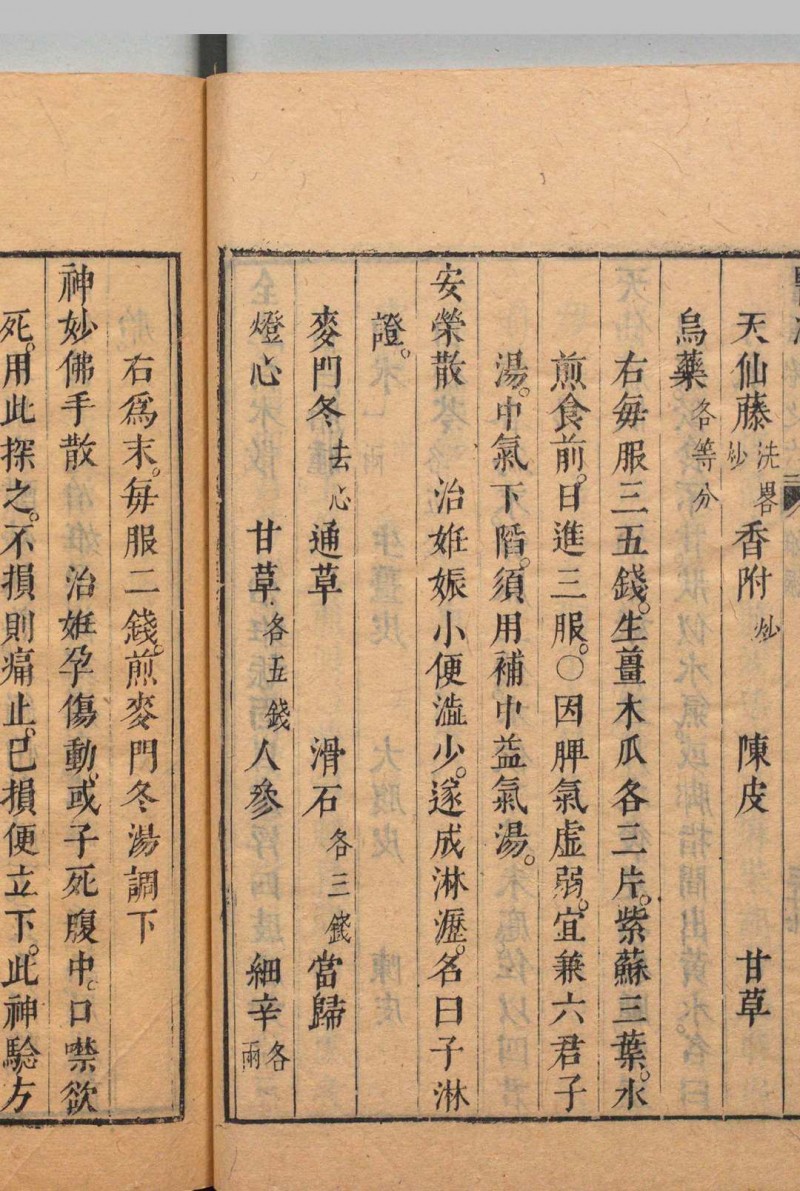 天仙藤洗畧炒　香附炒　陳皮　甘草
烏藥各等分
右毎服三五錢。生薑木瓜各三片。紫蘇三葉。水
煎食前。日進三服。〇因脾氣虛弱。宜兼六君子
湯。中氣下陷。須用補中益氣湯。
安榮散　治姙娠小便澁少。遂成淋瀝。名曰子淋
證。
麥門冬去心　通草　滑石各三錢　當歸
燈心　甘草各五錢　人參　細辛各一兩
右爲末。毎服二錢。煎麥門冬湯調下
神妙佛手散　治姙孕傷動。或子死腹中。口噤欲
死。用此探之。不損則痛止。已損便立下。此神驗方